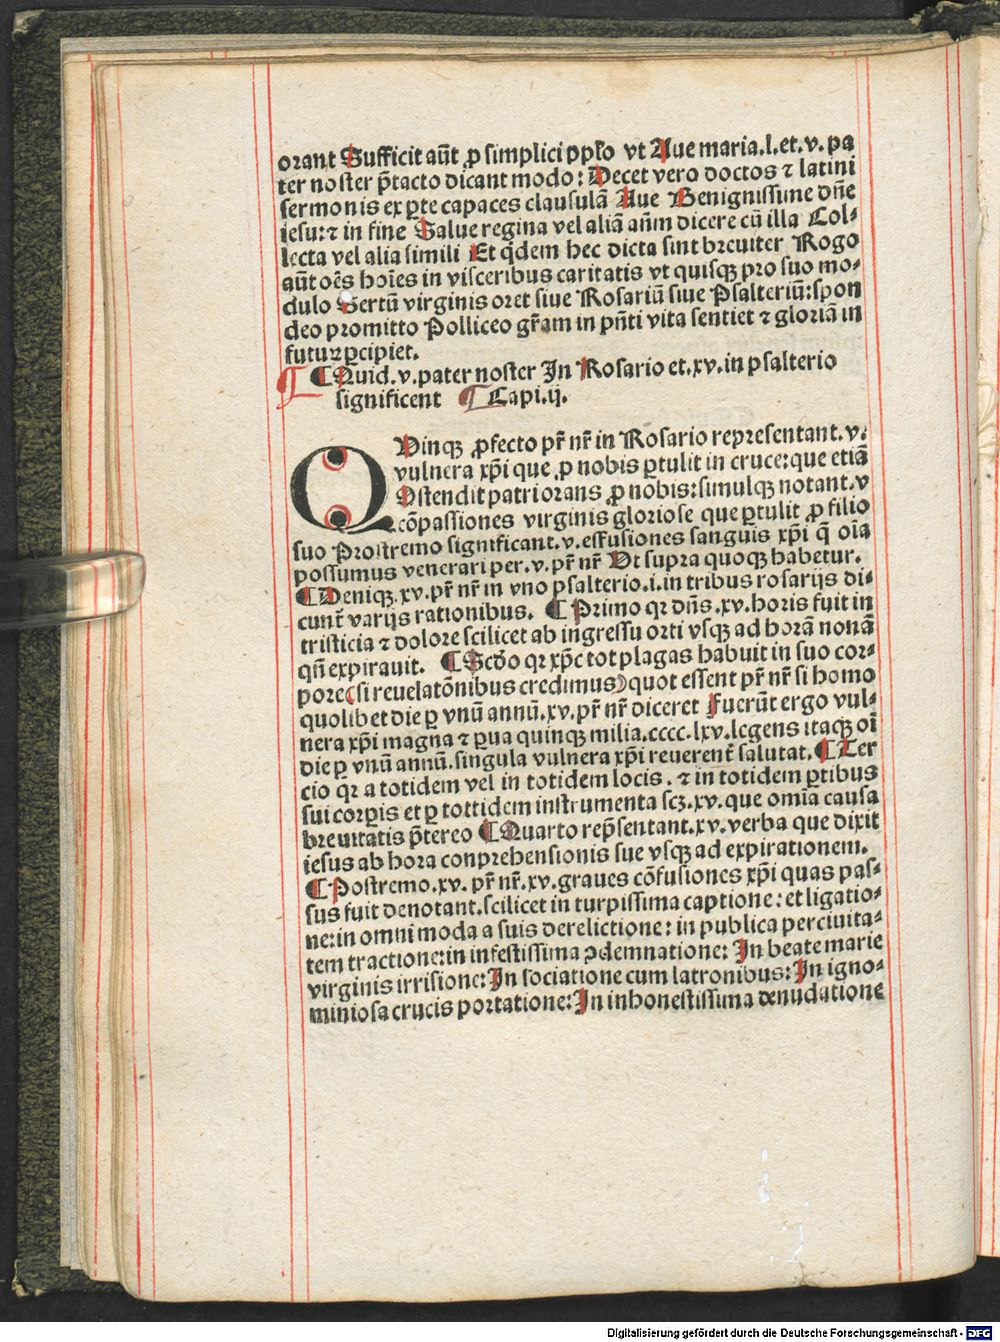 orant Sufficit aūt ꝓ simplici ppło vt Aue maria.l.et.v.pa
ter noster p̄tacto dicant modo: Decet vero doctos ⁊ latini
sermonis ex ꝑte capaces clausulā Aue Benignissime dn̄e
iesu:⁊ in fine Salue regina vel aliā an̄m dicere cū illa Col⸗
lecta vel alia simili Et q̇dem hec dicta sint breuiter Rogo
aūt oēs hoīes in visceribus caritatis vt quisqꝫ pro suo mo⸗
dulo Sertū virginis oret siue Rosariū siue Psalteriū:spon
deo promitto Polliceo gr̄am in pn̄ti vita sentiet ⁊ gloriā in
futuꝝ ꝑcipiet.
¶ Quid.v.pater noster In Rosario et.xv.in psalterio
significent ¶ Capi.ij.
QVinqꝫ ꝓfecto pr̄ nr̄ in Rosario representant.v.
vulnera xp̄i que ꝓ nobis ꝑtulit in cruce:que etiā
Ostendit patri orans ꝓ nobis:simulqꝫ notant.v
cōpassiones virginis gloriose que ꝑtulit ꝓ filio
suo Prostremo significant.v.effusiones sanguis xp̄i q̄ oīa
possumus venerari per.v.pr̄ nr̄ Vt supra quoqꝫ habetur.
¶ Deniqꝫ.xv.pr̄ nr̄ in vno psalterio.i.in tribus rosarijs di⸗
cunt̄ varijs rationibus. ¶ Primo qr dn̄s.xv.horis fuit in
tristicia ⁊ dolore scilicet ab ingressu orti vsqꝫ ad horā nonā
qn̄ expirauit. ¶ Scd̄o qr xp̄c tot plagas habuit in suo cor⸗
pore(si reuelatōnibus credimus)quot essent pr̄ nr̄ si homo
quolibet die ꝑ vnū annū.xv.pr̄ nr̄ diceret Fuerūt ergo vul⸗
nera xp̄i magna ⁊ ꝑua quinqꝫ milia.cccc.lxv.legens itaqꝫ oī
die ꝑ vnū annū.singula vulnera xp̄i reuerent̄ salutat. ¶ Ter
cio qr a totidem vel in totidem locis.⁊ in totidem ꝑtibus
sui corꝑis et ꝑ tottidem instrumenta scꝫ.xv.que omīa causa
breuitatis p̄tereo ¶ Quarto rep̄sentant.xv.verba que dixit
iesus ab hora conprehensionis sue vsqꝫ ad expirationem.
¶ Postremo.xv.pr̄ nr̄.xv.graues cōfusiones xp̄i quas pas⸗
sus fuit denotant.scilicet in turpissima captione:et ligatio⸗
ne:in omni moda a suis derelictione:in publica perciuita⸗
tem tractione:in infestissima ꝯdemnatione:In beate marie
virginis irrisione:In sociatione cum latronibus:In igno⸗
miniosa crucis portatione:In inhonestissima denudatione
Digitalisierung gefördert durch die Deutsche Forschungsgemeinschaft - DFG